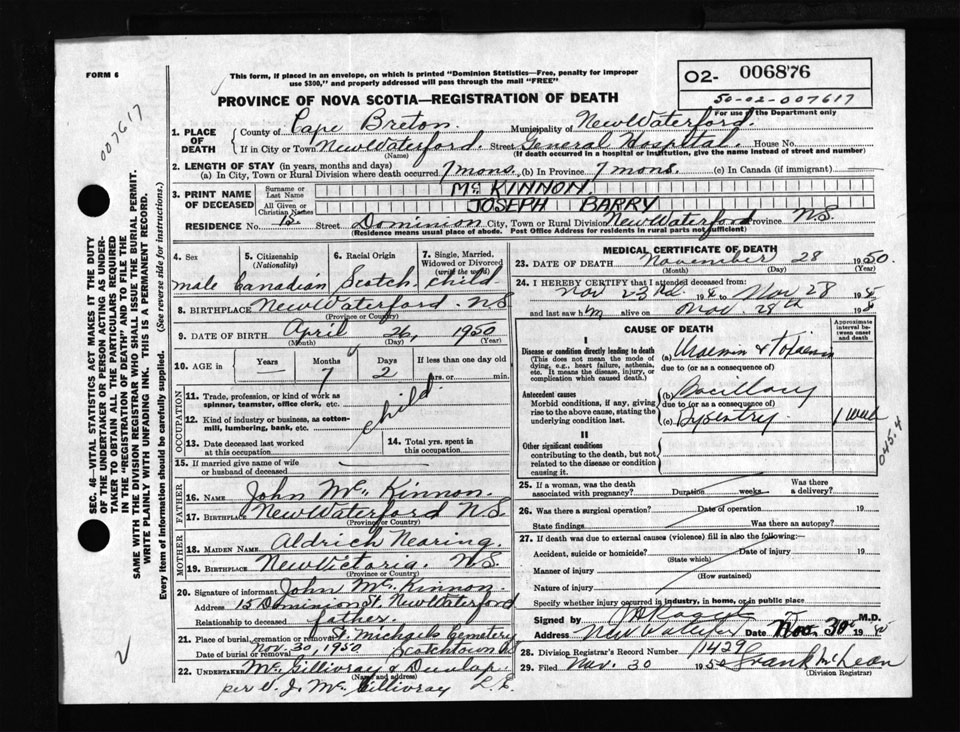 FORM 6
This form, if placed in an envelope, on which is printed "Dominion Statistics—Free, penalty for improper
use $300," and properly addressed will pass through the mail "FREE"
02- 006876
50-02-007617
For use of the Department only
007617
PROVINCE OF NOVA SCOTIA—REGISTRATION OF DEATH
1. PLACE OF DEATH County of Cape Breton. Municipality of New Waterford.
If in City or Town New Waterford. Street General Hospital. House No.
(Name) (If death occurred in a hospital or institution, give the name instead of street and number)
2. LENGTH OF STAY (in years, months and days)
(a) In City, Town or Rural Division where death occurred 7 mons. (b) In Province 7 mons. (c) In Canada (if immigrant)
3. PRINT NAME OF DECEASED Surname or Last Name Mc KINNON.
All Given or Christian Names JOSEPH BARRY
RESIDENCE No. 15. Street Dominion City, Town or Rural Division New Waterford Province N.S.
(Residence means usual place of abode. Post Office Address for residents in rural parts not sufficient)
4. Sex 5. Citizenship (Nationality) 6. Racial Origin 7. Single, Married, Widowed or Divorced (write the word)
male Canadian Scotch child
8. BIRTHPLACE New Waterford. NS
(Province or Country)
9. DATE OF BIRTH April 26, 1950
(Month) (Day) (Year)
10. AGE in Years — Months 7 Days 2 If less than one day old
hrs. or min.
OCCUPATION
11. Trade, profession, or kind of work as
spinner, teamster, office clerk, etc.
12. Kind of industry or business, as cotton-
mill, lumbering, bank, etc.
child
13. Date deceased last worked
at this occupation
14. Total yrs. spent in
this occupation
15. If married give name of wife
or husband of deceased
FATHER
16. Name John Mc Kinnon.
17. Birthplace New Waterford N.S
(Province or Country)
MOTHER
18. MAIDEN NAME Aldrich Nearing.
19. BIRTHPLACE New Victoria. N.S.
(Province or Country)
20. Signature of informant John Mc Kinnon
Address 15 Dominion St. New Waterford
Relationship to deceased father.
21. Place of burial, cremation or removal St. Michaels Cemetery
Date of burial or removal Nov. 30, 1950 Scotchtown NS
22. UNDERTAKER Mc Gillivray & Dunlop.
(Name and address)
per J. J. Mc Gillivray L.E.
MEDICAL CERTIFICATE OF DEATH
23. DATE OF DEATH November 28 1950.
(Month) (Day) (Year)
24. I HEREBY CERTIFY that I attended deceased from:
Nov 23rd 19 to Nov 28 19
and last saw him alive on Nov. 28th 19
CAUSE OF DEATH
Approximate interval between onset and death
I
Disease or condition directly leading to death
(This does not mean the mode of
dying, e.g., heart failure, asthenia,
etc. It means the disease, injury, or
complication which caused death.)
(a) Uraemia & Toxaemia
due to (or as a consequence of)
Antecedent causes
Morbid conditions, if any, giving
rise to the above cause, stating the
underlying condition last.
(b) Bacillary
due to (or as a consequence of)
(c) Dysentry 1 week
0454
II
Other significant conditions
contributing to the death, but not
related to the disease or condition
causing it.
25. If a woman, was the death
associated with pregnancy? Duration weeks. Was there
a delivery?
26. Was there a surgical operation? Date of operation 19
State findings Was there an autopsy?
27. If death was due to external causes (violence) fill in also the following:—
Accident, suicide or homicide? Date of injury 19
(State which)
Manner of injury
(How sustained)
Nature of injury
Specify whether injury occurred in industry, in home, or in public place
Signed by M.D.
Address New Waterford Date Nov. 30 19
28. Division Registrar's Record Number 1429
29. Filed Nov. 30 1950 Frank McLean
(Division Registrar)
SEC. 46—VITAL STATISTICS ACT MAKES IT THE DUTY
OF THE UNDERTAKER OR PERSON ACTING AS UNDER-
TAKER TO OBTAIN ALL THE PARTICULARS REQUIRED
IN THE "REGISTRATION OF DEATH" AND TO FILE THE
SAME WITH THE DIVISION REGISTRAR WHO SHALL ISSUE THE BURIAL PERMIT.
WRITE PLAINLY WITH UNFADING INK. THIS IS A PERMANENT RECORD.
Every item of information should be carefully supplied. (See reverse side for instructions.)